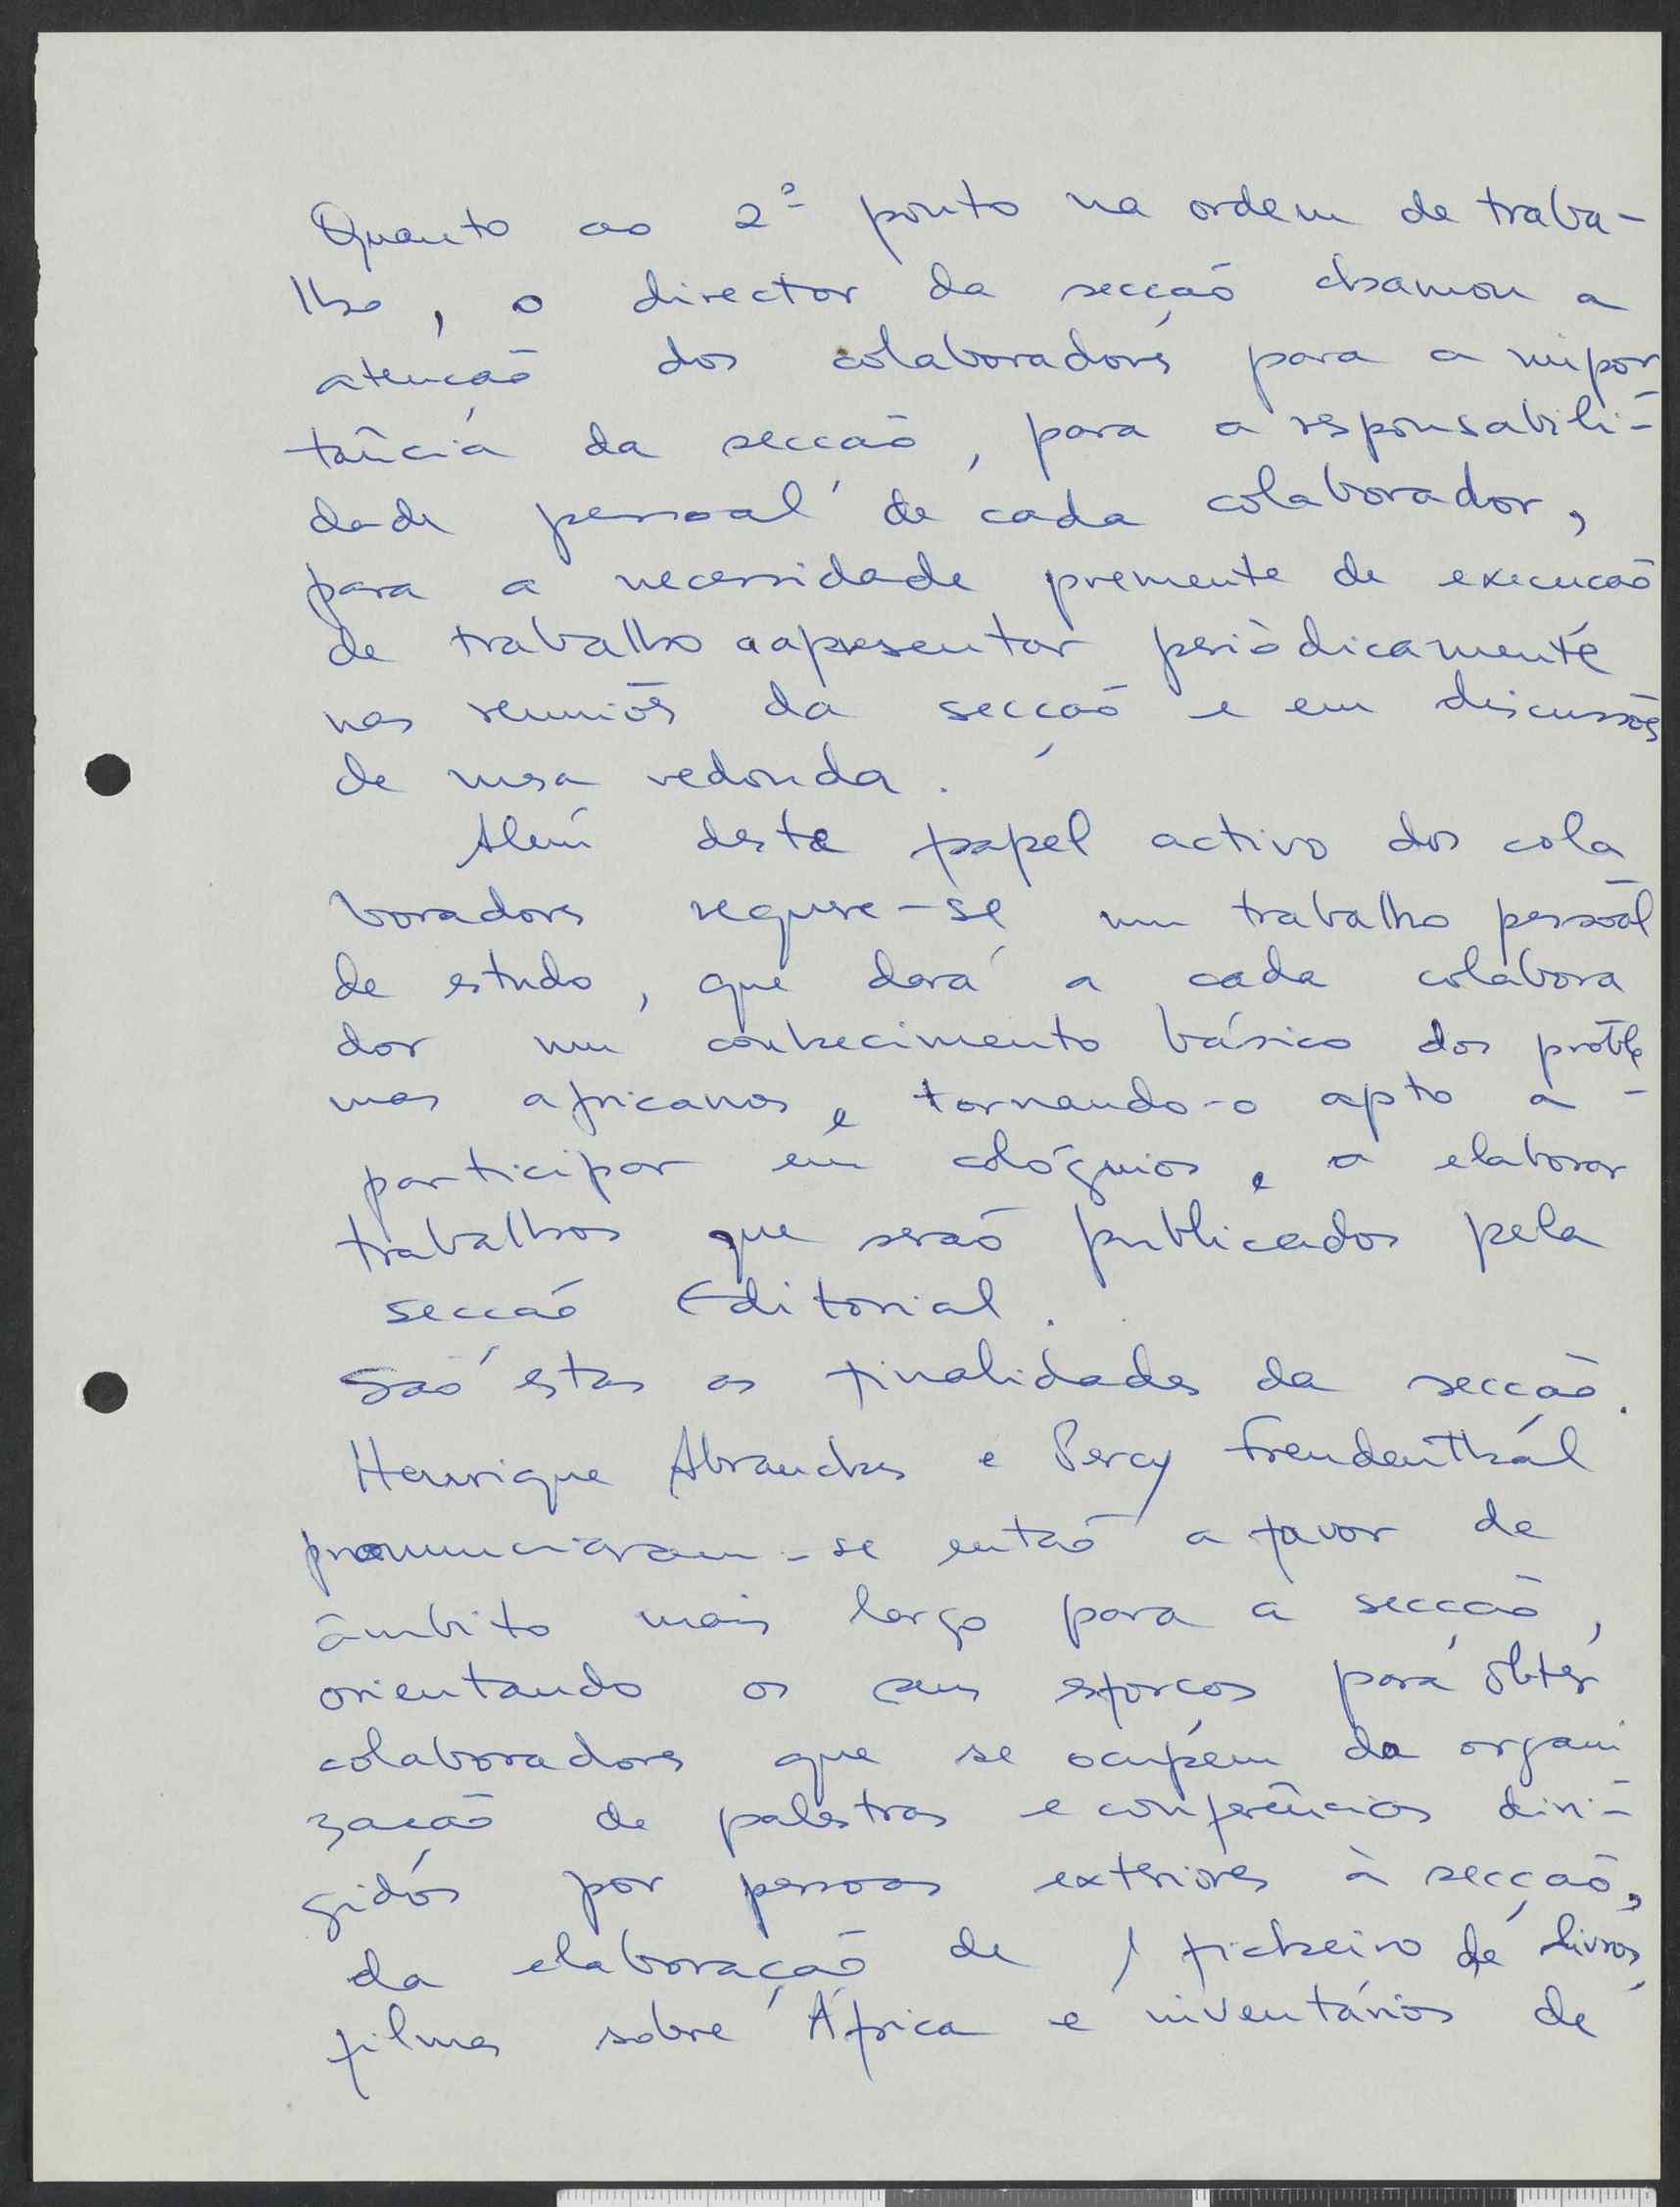 Quanto ao 2º ponto na ordem de traba-
lho, o director da secção chamou a
atenção dos colaboradores para a impor-
tância da secção, para a responsabili-
dade pessoal de cada colaborador,
para a necessidade premente de execução
de trabalho a apresentar periòdicamente
nas reuniões da secção e em discussões
de mesa redonda.
Além deste papel activo dos cola-
boradores requere-se um trabalho pessoal
de estudo, que dará a cada colabora
dor um conhecimento básico dos proble-
mas africanos, e tornando-o apto a
participar em colóquios, e a elaborar
trabalhos que serão publicados pela
secção Editorial.
São estas as finalidades da secção.
Henrique Abranches e Percy Freudenthal
pronunciaram-se então a favor de
âmbito mais largo para a secção,
orientando os seus esforços para obter
colaboradores que se ocupem da organi-
zação de palestras e conferências diri-
gidos por pessoas exteriores à secção,
da elaboração de 1 ficheiro de livros,
filmes sobre África e inventários de